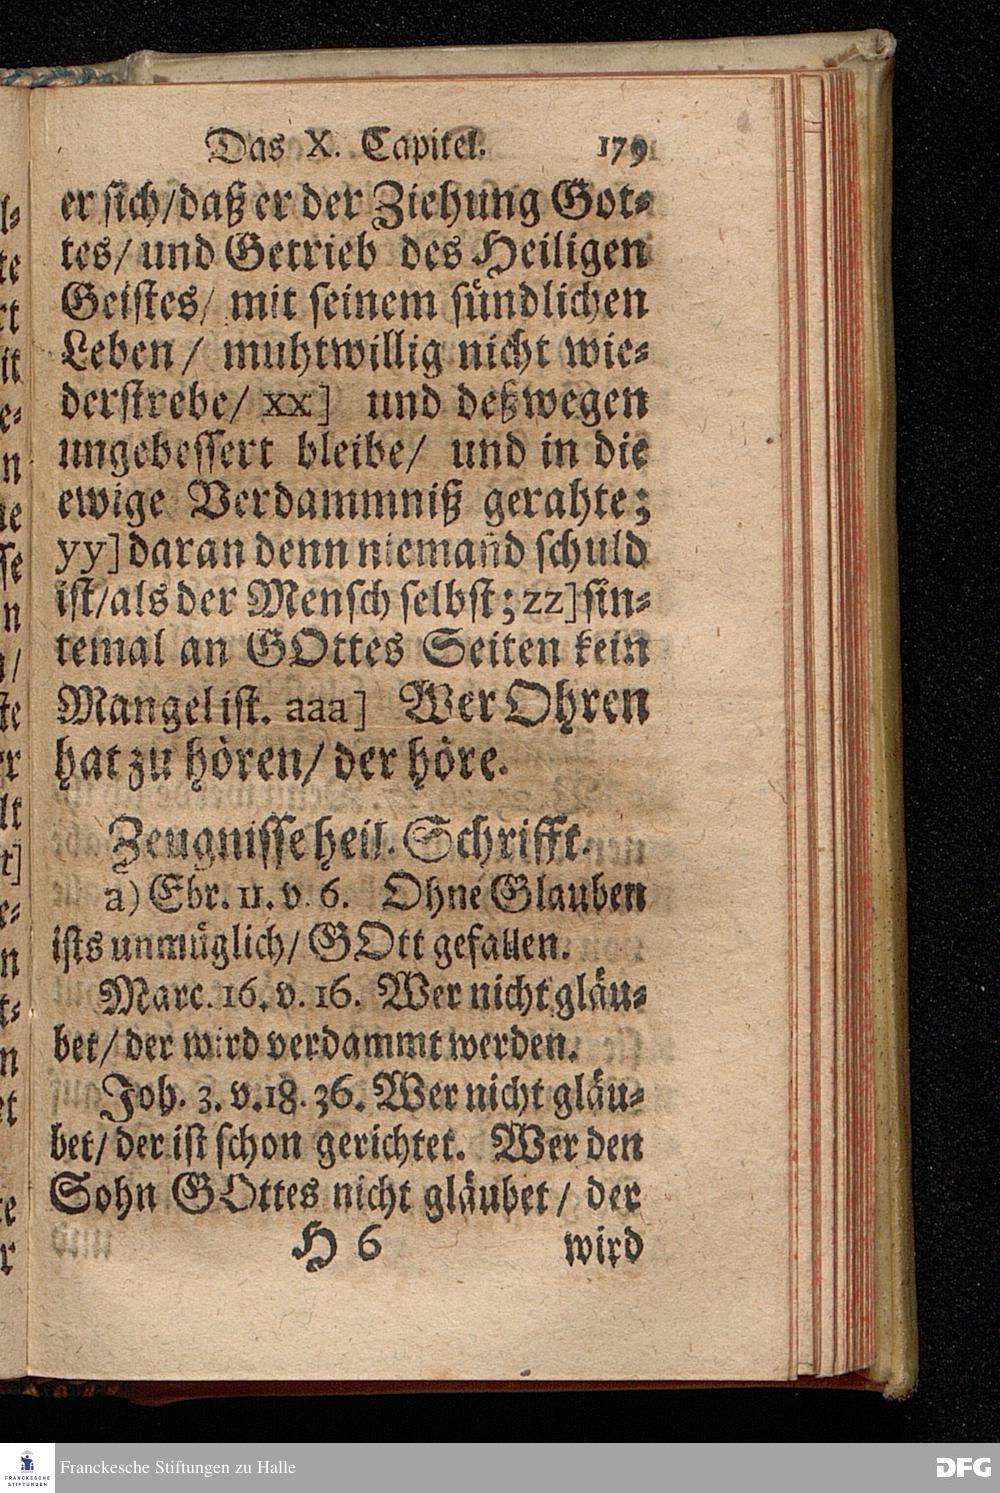 Das X. Capitel. 179
er sich/daß er der Ziehung Got-
tes/ und Getrieb des Heiligen
Geistes/ mit seinem sündlichen
Leben/ muhtwillig nicht wie-
derstrebe/ xx] und deßwegen
ungebessert bleibe/ und in die
ewige Verdammniß gerahte;
yy] daran denn niemand schuld
ist/als der Mensch selbst; zz] sin-
temal an GOttes Seiten kein
Mangel ist. aaa] Wer Ohren
hat zu hören/ der höre.
Zeugnisse heil. Schrifft.
a) Ebr. 11. v. 6. Ohne Glauben
ists unmüglich/ GOtt gefallen.
Marc. 16. v. 16. Wer nicht gläu-
bet/ der wird verdammt werden.
Joh. 3. v. 18. 36. Wer nicht gläu-
bet/ der ist schon gerichtet. Wer den
Sohn GOttes nicht gläubet/ der
H 6 wird
FRANCKESCHE
STIFTUNGEN
Franckesche Stiftungen zu Halle
DFG